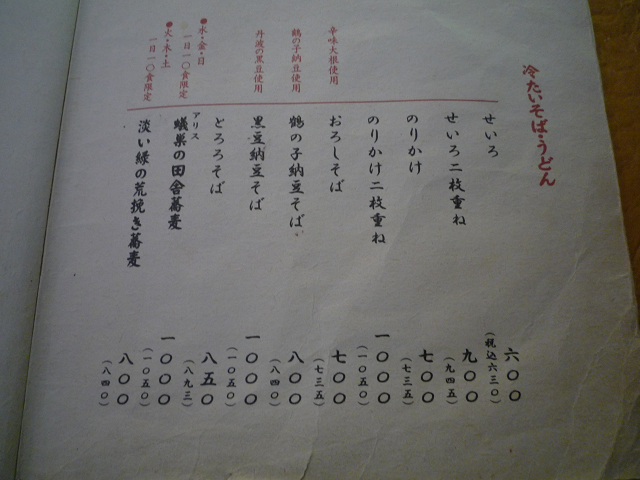 冷たいそば・うどん
せいろ 六〇〇
(税込六三〇)
せいろ二枚重ね 九〇〇
(九四五)
のりかけ 七〇〇
(七三五)
のりかけ二枚重ね 一〇〇〇
(一〇五〇)
辛味大根使用
おろしそば 七〇〇
(七三五)
鶴の子納豆使用
鶴の子納豆そば 八〇〇
(八四〇)
丹波の黒豆使用
黒豆納豆そば 一〇〇〇
(一〇五〇)
とろろそば 八五〇
(八九三)
●水・金・日
一日一〇食限定
アリス
蟻巣の田舎蕎麦 一〇〇〇
(一〇五〇)
●火・木・土
一日一〇食限定
淡い緑の荒挽き蕎麦 八〇〇
(八四〇)